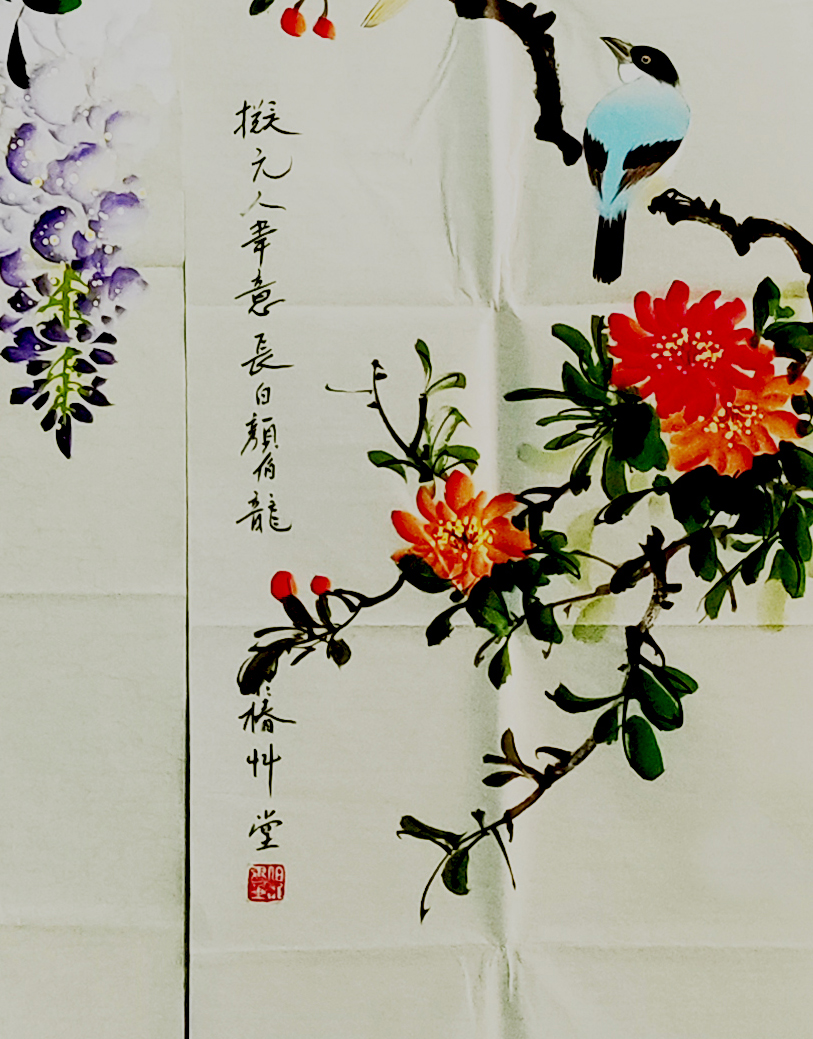 擬元人筆意長白顏伯龍
椿艸堂